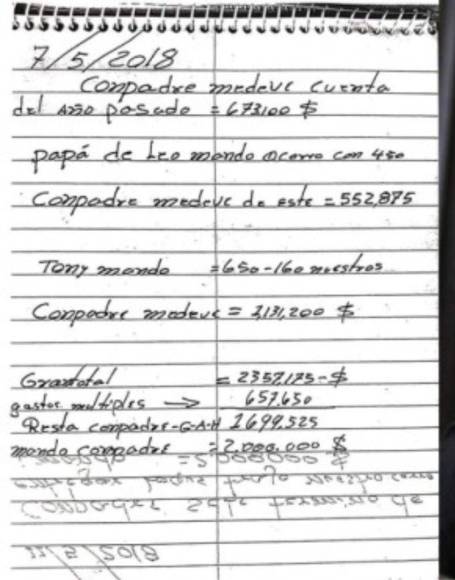 7/5/2018
Conpadre medeve cuenta
del Año pasado = 673,100 $
papá de Leo mando ocarro con 450
Conpadre medeve de este = 552,875
Tony mando = 650-160 nuestros
Conpadre medeve = 1,131,200 $
Grantotal = 2357,175-$
gastos multiples → 657,650
Resta conpadre-G-A-H 1699,525
mando conpadre = 2,000,000 $